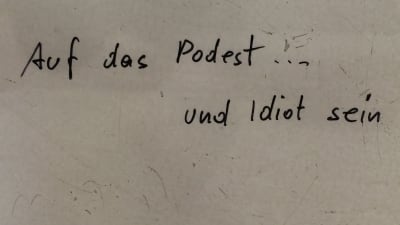 Auf das Podest...
und Idiot sein